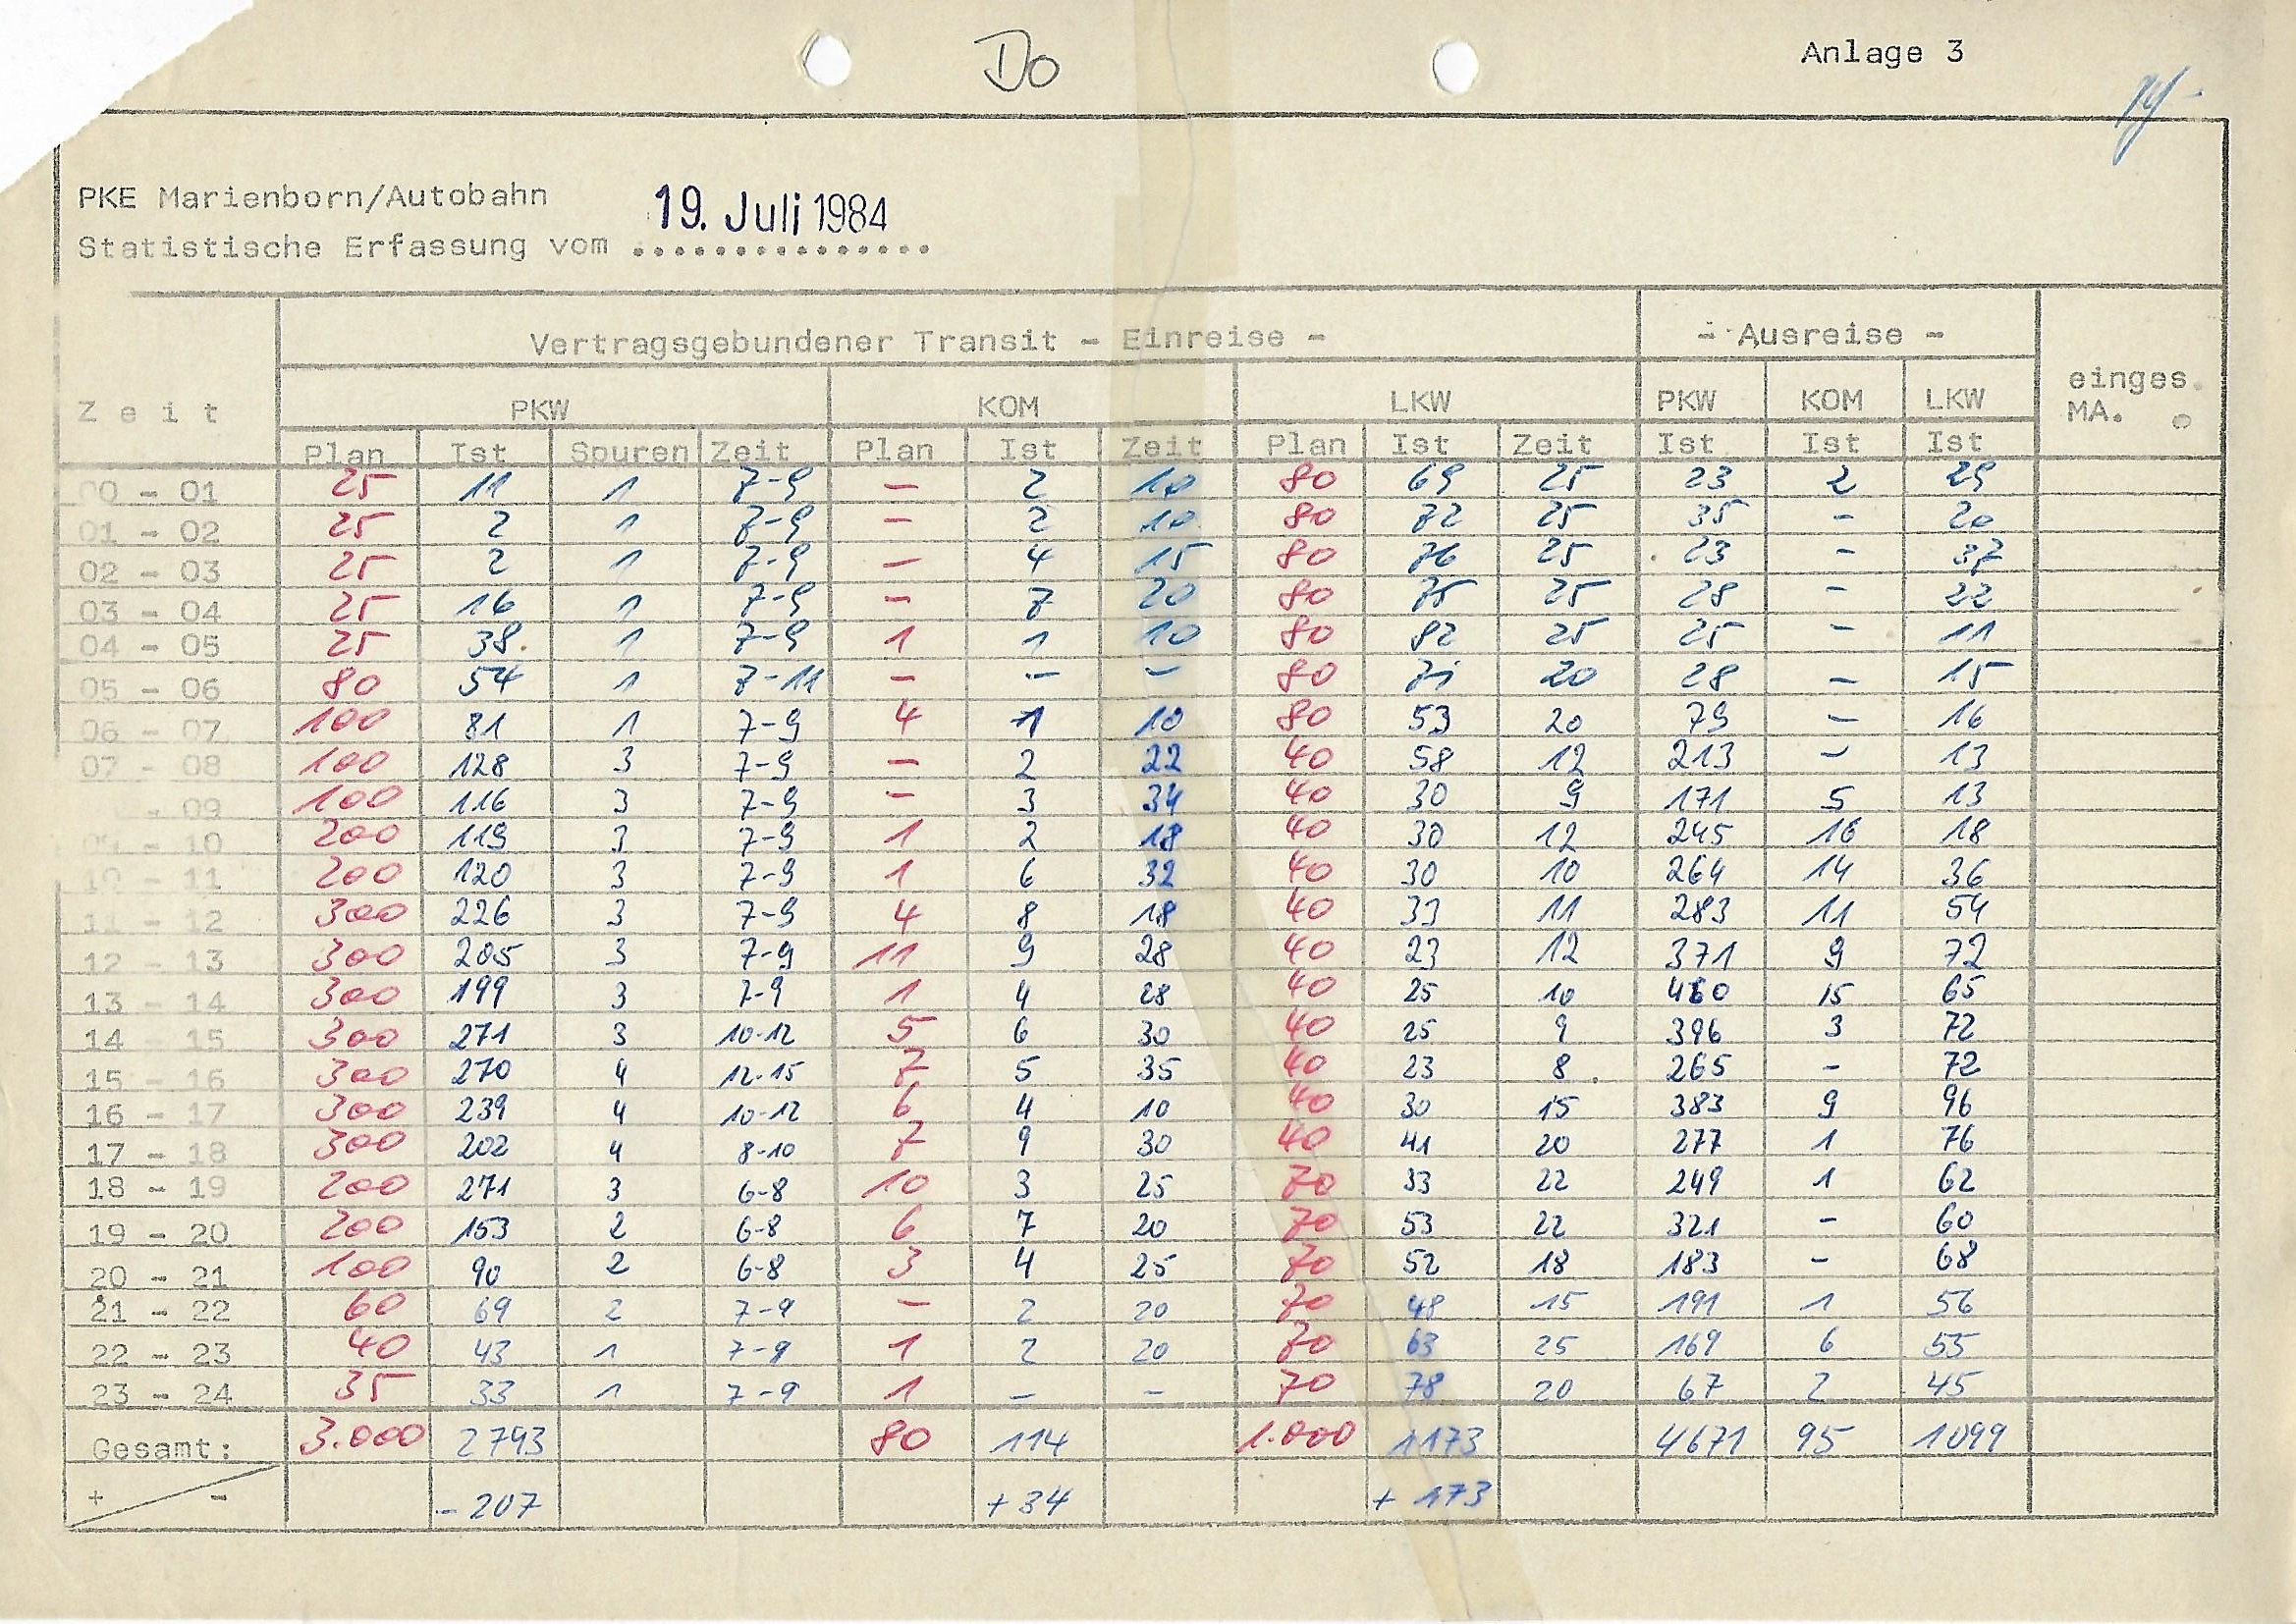 Do
Anlage 3
PKE Marienborn/Autobahn
19. Juli 1984
Statistische Erfassung vom ...............
Vertragsgebundener Transit - Einreise -
- Ausreise -
Zeit PKW KOM LKW PKW KOM LKW einges. MA.
Plan Ist Spuren Zeit Plan Ist Zeit Plan Ist Zeit Ist Ist Ist
00 - 01 25 11 1 7-9 - 2 10 80 69 25 23 2 29
01 - 02 25 2 1 7-9 - 2 10 80 72 25 35 - 20
02 - 03 25 2 1 7-9 - 4 15 80 76 25 23 - 37
03 - 04 25 16 1 7-9 - 7 20 80 75 25 28 - 22
04 - 05 25 38 1 7-9 1 1 10 80 82 25 25 - 11
05 - 06 80 54 1 7-11 - - - 80 71 20 28 - 15
06 - 07 100 81 1 7-9 4 1 10 80 53 20 79 - 16
07 - 08 100 128 3 7-9 - 2 22 40 58 12 213 - 13
- 09 100 116 3 7-9 - 3 34 40 30 9 171 5 13
- 10 200 119 3 7-9 1 2 18 40 30 12 245 16 18
10 - 11 200 120 3 7-9 1 6 32 40 30 10 264 14 36
11 - 12 300 226 3 7-9 4 8 18 40 33 11 283 11 54
12 - 13 300 205 3 7-9 11 9 28 40 23 12 371 9 72
13 - 14 300 199 3 7-9 1 4 28 40 25 10 15 65
14 15 300 271 3 10-12 5 6 30 40 25 9 396 3 72
15 - 16 300 270 4 12-15 7 5 35 40 23 8 265 - 72
16 - 17 300 239 4 10-12 6 4 10 40 30 15 383 9 96
17 - 18 300 202 4 8-10 7 9 30 40 41 20 277 1 76
18 - 19 200 271 3 6-8 10 3 25 70 33 22 249 1 62
19 - 20 200 153 2 6-8 6 7 20 70 53 22 321 - 60
20 - 21 100 90 2 6-8 3 4 25 70 52 18 183 - 68
21 - 22 60 69 2 7-9 - 2 20 70 48 15 191 1 56
22 - 23 40 43 1 7-9 1 2 20 70 63 25 169 6 55
23 - 24 35 33 1 7-9 1 - - 70 78 20 67 2 45
Gesamt: 3.000 2793 80 114 1.000 1173 4671 95 1099
+ - - 207 + 34 + 173